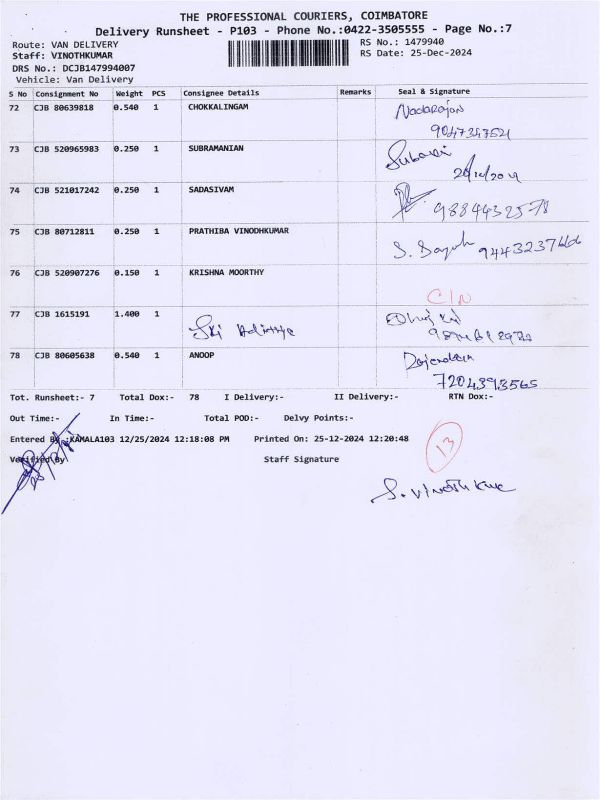 THE PROFESSIONAL COURIERS, COIMBATORE
Delivery Runsheet - P103 - Phone No.:0422-3505555 - Page No.:7
Route: VAN DELIVERY RS No.: 1479940
Staff: VINOTHKUMAR RS Date: 25-Dec-2024
DRS No.: DCJB147994007
Vehicle: Van Delivery
S No Consignment No Weight PCS Consignee Details Remarks Seal & Signature
72 CJB 80639818 0.540 1 CHOKKALINGAM Nadarajan
9047347521
73 CJB 520965983 0.250 1 SUBRAMANIAN
74 CJB 521017242 0.250 1 SADASIVAM 9884432578
75 CJB 80712811 0.250 1 PRATHIBA VINODHKUMAR
9443237666
76 CJB 520907276 0.150 1 KRISHNA MOORTHY
77 CJB 1615191 1.400 1
78 CJB 80605638 0.540 1 ANOOP
7204393565
Tot. Runsheet:- 7 Total Dox:- 78 I Delivery:- II Delivery:- RTN Dox:-
Out Time:- In Time:- Total POD:- Delvy Points:-
Entered By :KAMALA103 12/25/2024 12:18:08 PM Printed On: 25-12-2024 12:20:48
13
Verified By Staff Signature
S. Vinoth Kumar